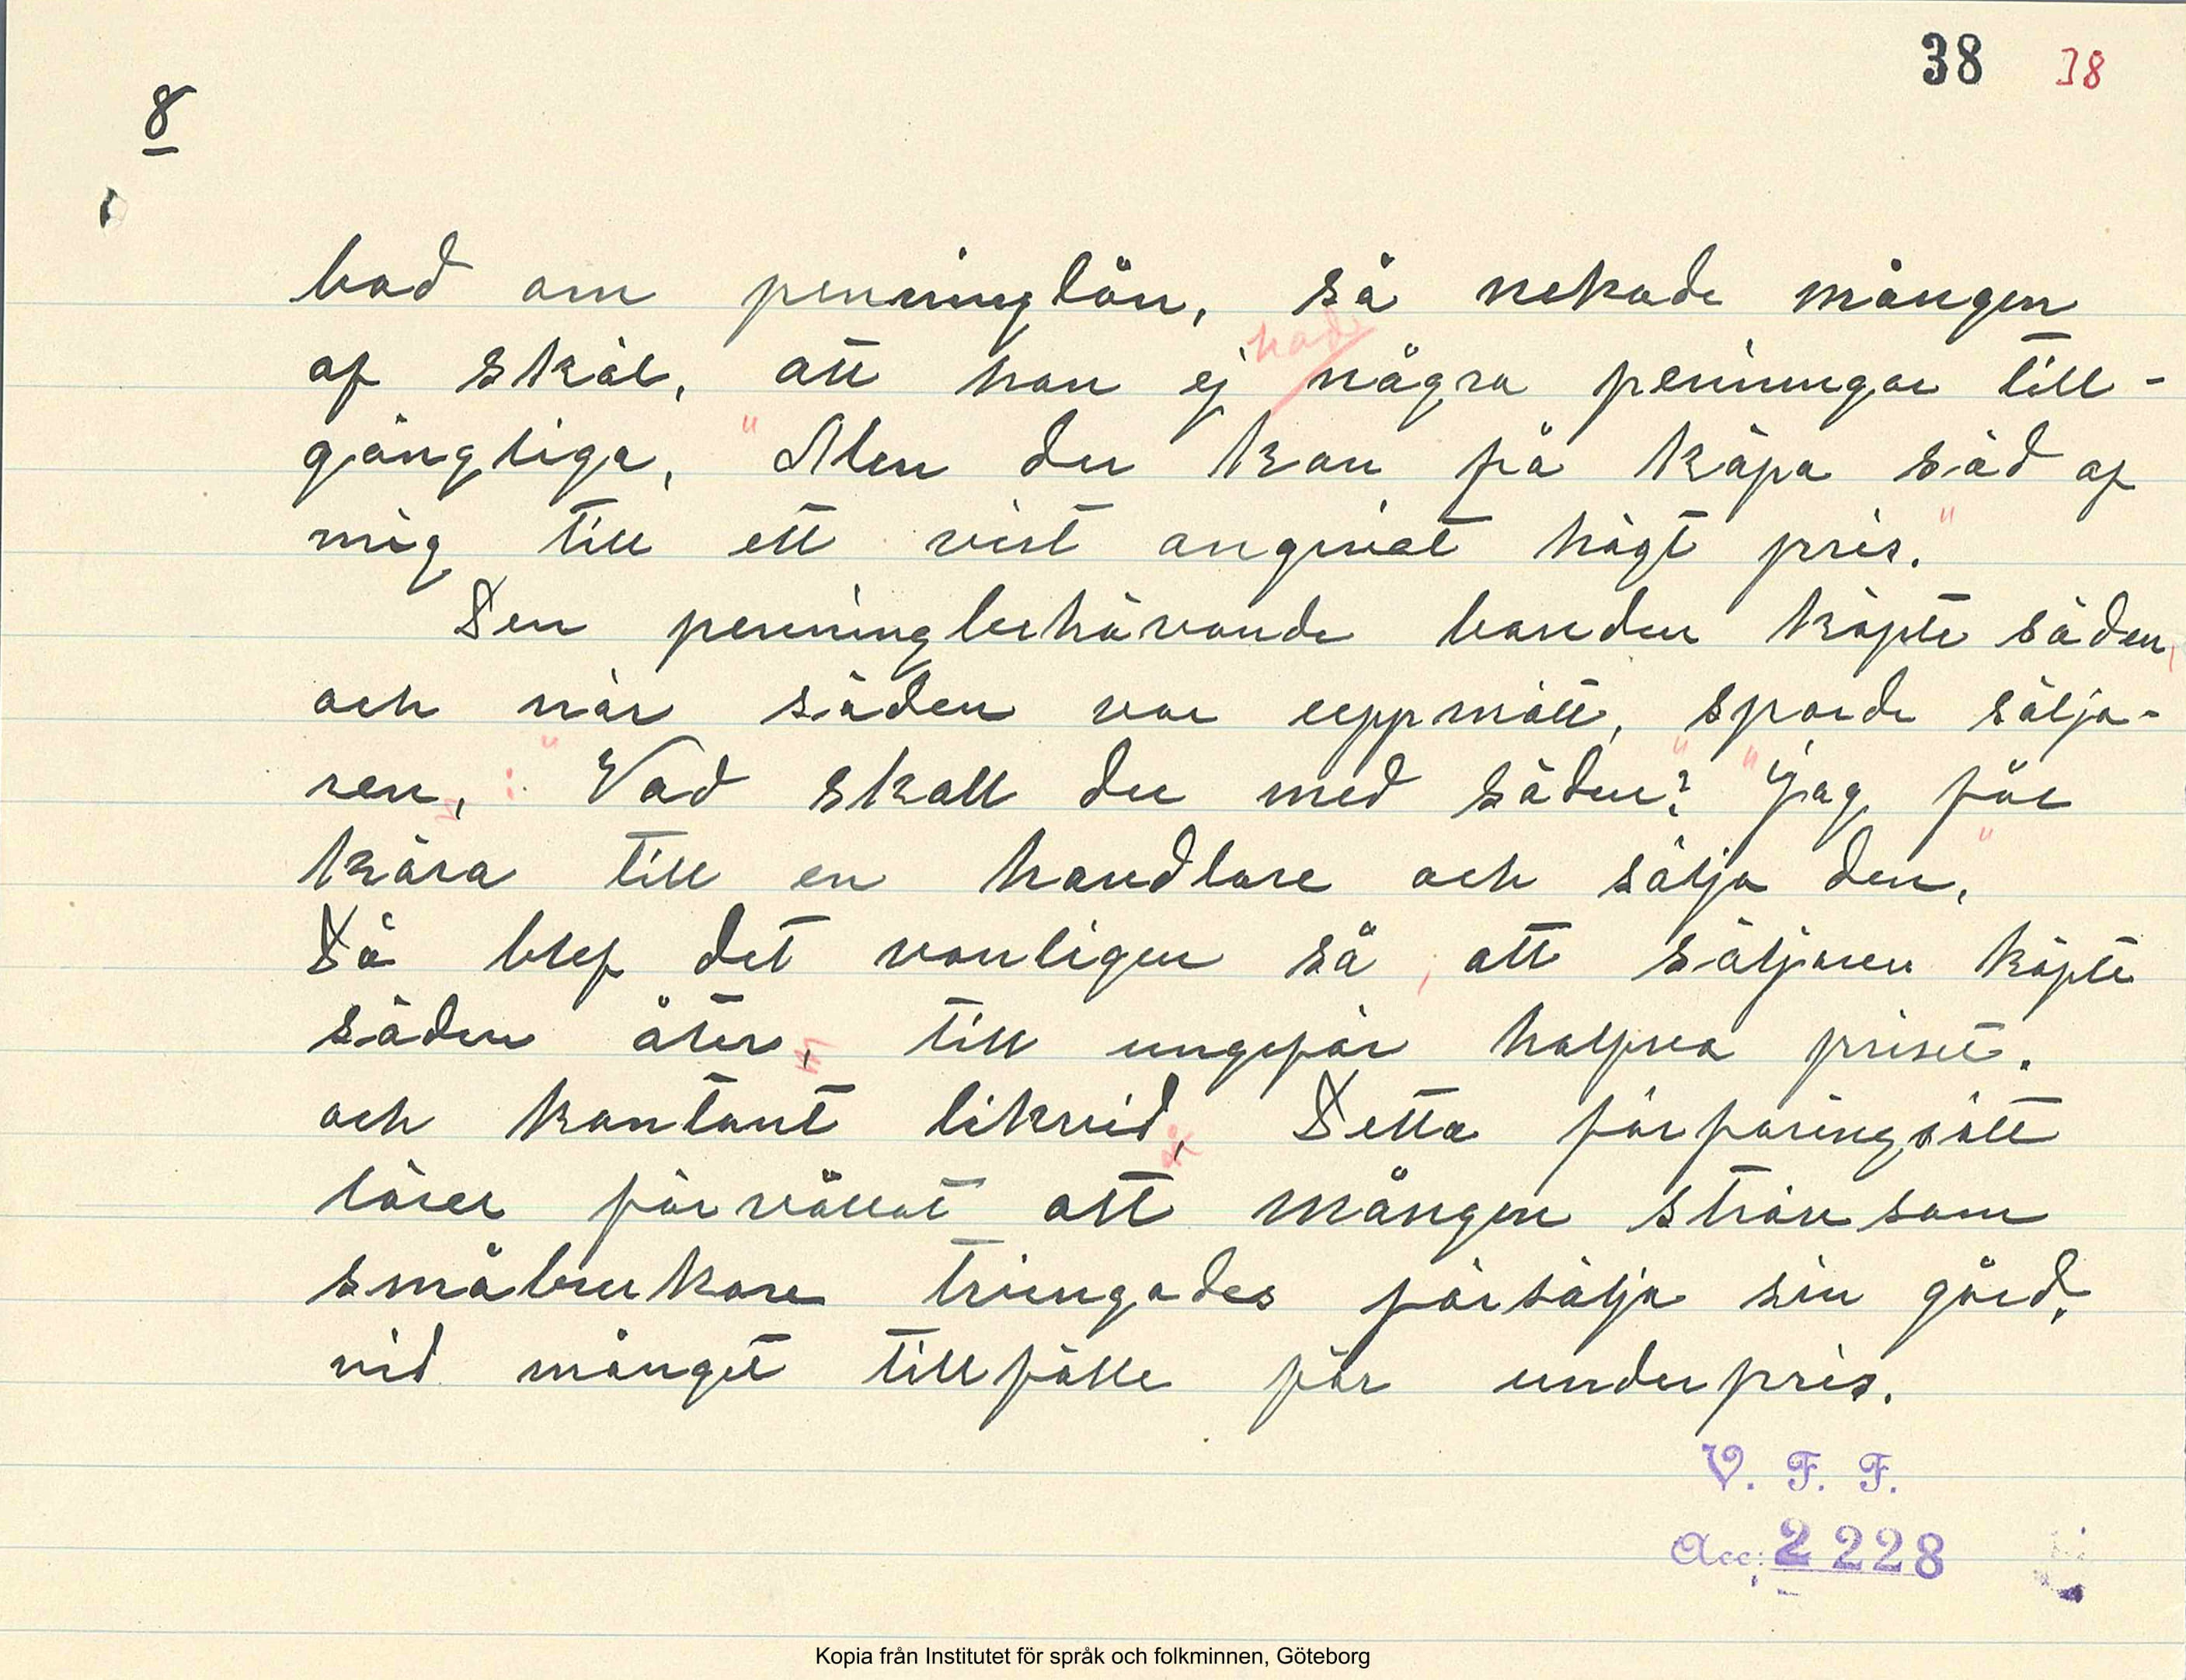 38 38
8
bad om penninglån, så nekade mången
af skäl, att han ej had några penningar till-
gängliga, "Men du kan få köpa säd af
mig till ett vist angivet högt pris."
Den penningbehövande bonden köpte säden,
och när säden var uppmätt, sporde sälja-
ren, : "Vad skall du med säden?" "Jag får
köra till en handlare och sälja den,"
Då blef det vanligen så, att säljaren köpte
säden åter, till ungefär halfva priset.
och kontant likvid, Detta förfaringsätt
lärer förvållat att mången strävsam
småbrukare tvingades försälja sin gård,
vid månget tillfälle för underpris.
V. F. F.
Acc: 2228
Kopia från Institutet för språk och folkminnen, Göteborg